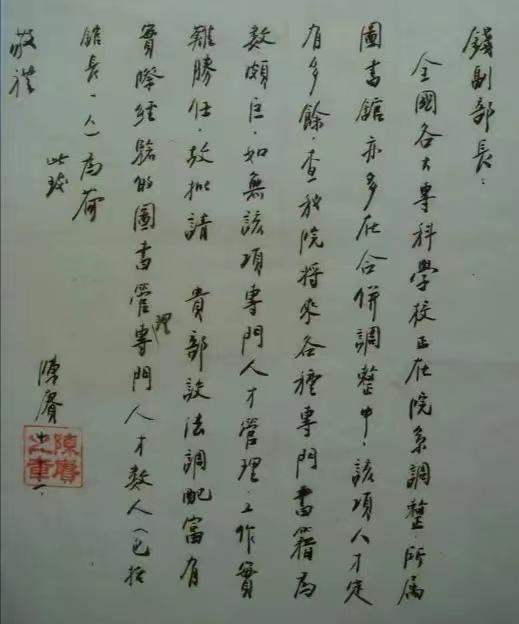 錢副部長：
全國各大專科學校正在院系調整，所屬
圖書館亦多在合併調整中，該項人才定
有多餘，查我院將來各種專門書籍為
數頗巨，如無該項專門人才管理，工作實
難勝任，故擬請 貴部設法調配富有
實際經驗的圖書管理專門人才數人（包括
館長一人）為荷
此致
敬禮
陳賡
十一、
陳賡之章